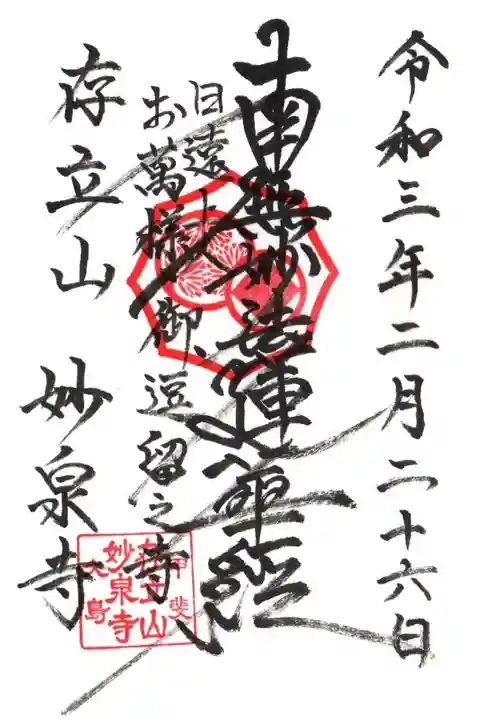 令和三年二月二十六日
南無妙法蓮華経
日遠上人
お萬様御逗留之寺
存立山 妙泉寺
甲斐
存立山
妙泉寺
大島